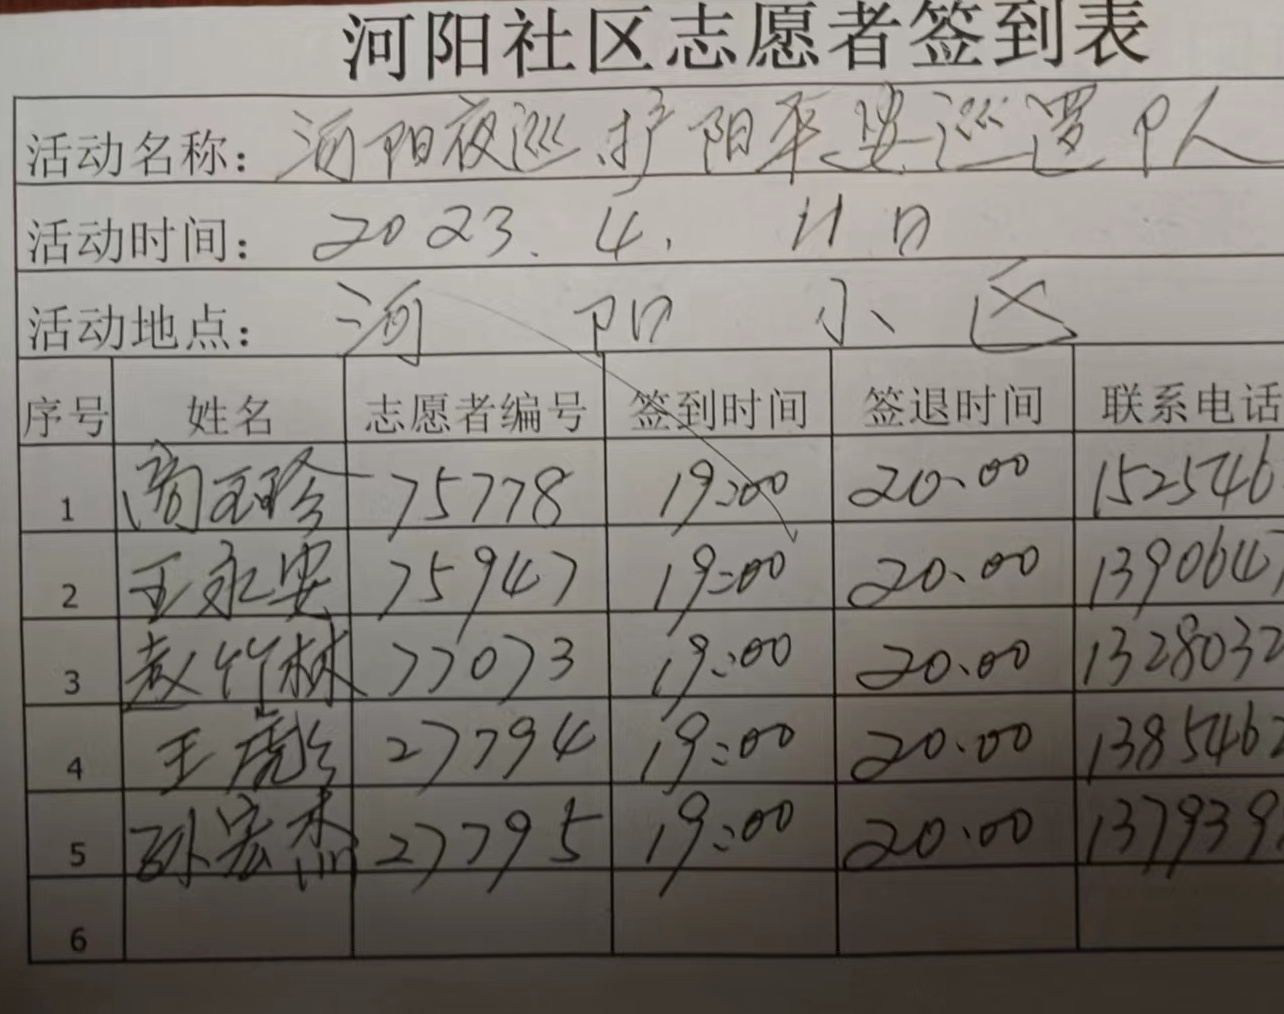 河阳社区志愿者签到表
活动名称：河阳夜巡.护阳平安巡逻队
活动时间：2023.4. 11日
活动地点：河 阳 小 区
序号 姓名 志愿者编号 签到时间 签退时间 联系电话
1 周玉玲 75778 19:00 20.00 1525746
2 王永安 75947 19:00 20.00 1390647
3 赵竹林 77073 19:00 20.00 1328032
4 王虎 27794 19:00 20.00 1385462
5 孙宏杰 27795 19:00 20.00 137939
6